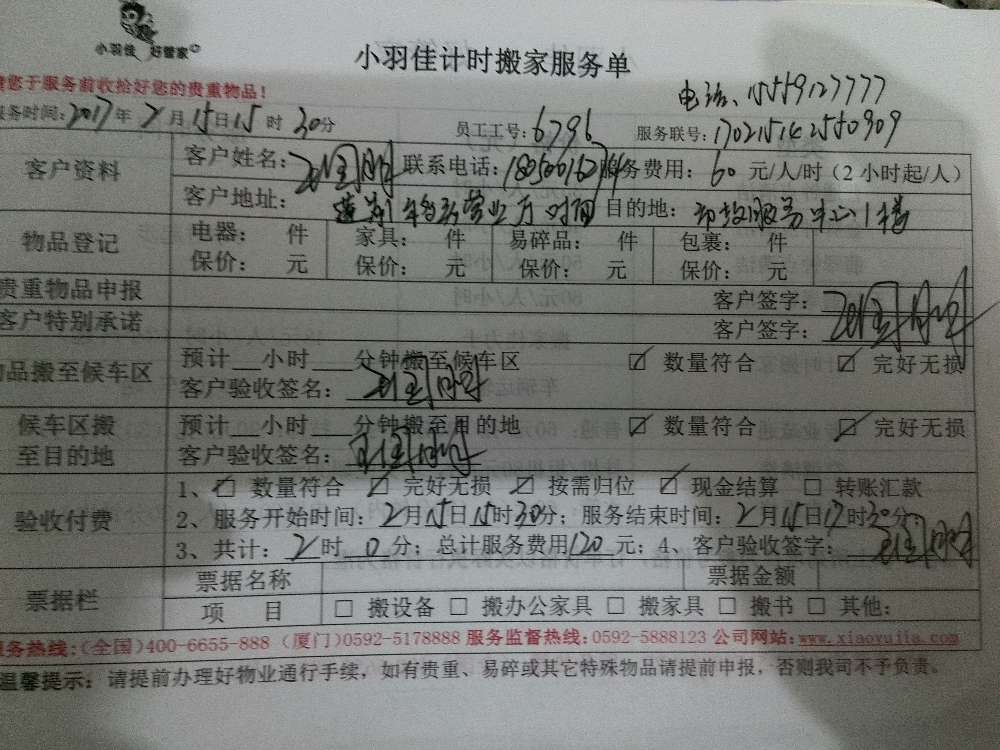 小羽佳 好管家
小羽佳计时搬家服务单
请您于服务前收拾好您的贵重物品！
电话、15559127777
服务时间：2017年2月15日15时30分 员工工号：6796 服务联号：1702151425^0909
客户资料 客户姓名： 联系电话： 服务费用：60元/人/时（2小时起/人）
客户地址： 营业厅 对面 目的地： 服务中心1楼
物品登记 电器： 件 家具： 件 易碎品： 件 包裹： 件
保价： 元 保价： 元 保价： 元 保价： 元
贵重物品申报 客户签字：
客户特别承诺 客户签字：
物品搬至候车区 预计__小时___分钟搬至候车区 ☑ 数量符合 ☑ 完好无损
客户验收签名：
候车区搬至目的地 预计__小时___分钟搬至目的地 ☑ 数量符合 ☑ 完好无损
客户验收签名：
验收付费 1、☑ 数量符合 ☑ 完好无损 ☑ 按需归位 ☑ 现金结算 □ 转账汇款
2、服务开始时间：2月15日15时30分；服务结束时间：2月15日17时30分
3、共计：2时0分；总计服务费用120元；4、客户验收签字：
票据栏 票据名称 票据金额
项 目 □ 搬设备 □ 搬办公家具 □ 搬家具 □ 搬书 □ 其他：
服务热线：（全国）400-6655-888（厦门）0592-5178888 服务监督热线：0592-5888123 公司网站：www.xiaoyujia.com
温馨提示：请提前办理好物业通行手续，如有贵重、易碎或其它特殊物品请提前申报，否则我司不予负责。